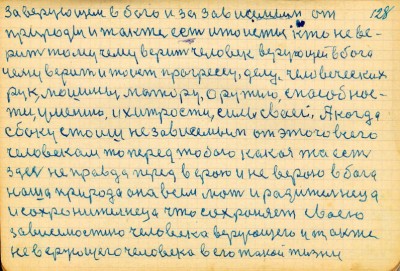 за верующем в бога и за зависемым от 128
природы и также ест и то исти: кто не ве-
рит тому чему верит человек верующей в бога
чему верит и тоет прогрессу, делу человеческих
рук, машины, мотору, оружию, способнос-
ти, умению, и хитрости, силы своей, А когда
сбоку стоиш независемым от этого всего
человекам то перед тобою какая та ест
здес неправда перед верою и не верою в бога
наша природа она всем мат и радителнеца
и сохронителнеца что сохроняет своею
зависемостию человека верующего и также
не верующего человека в его такой жизни